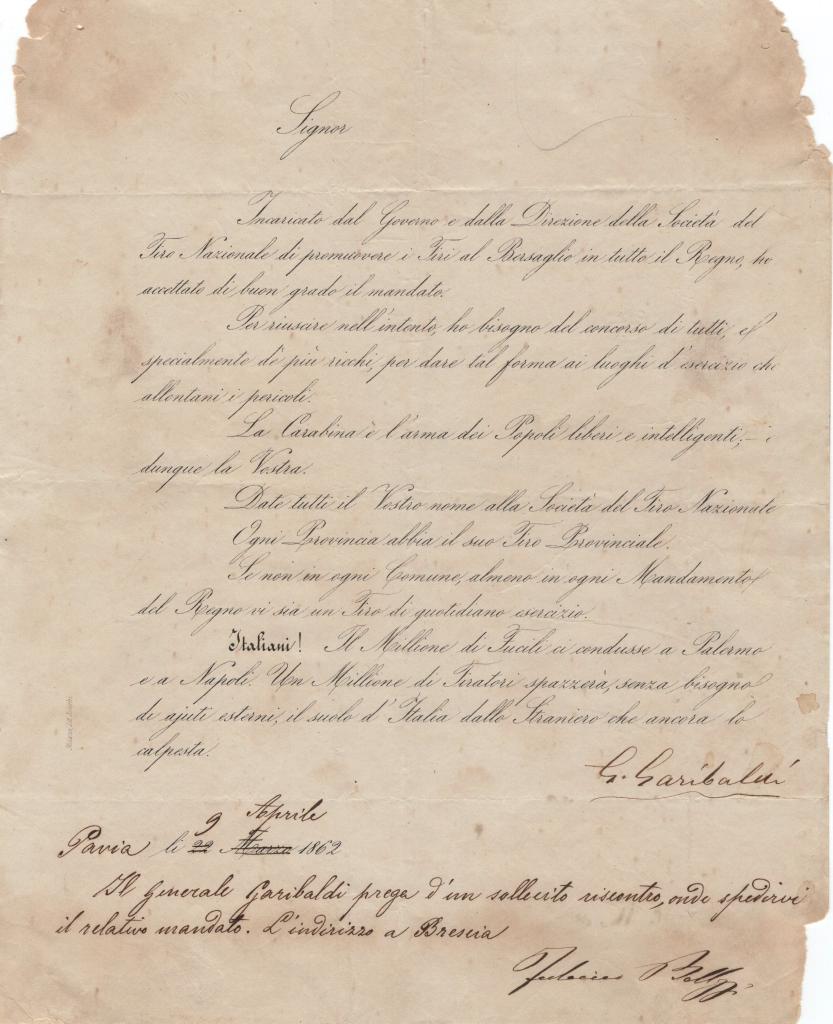 Signor
Incaricato dal Governo e dalla Direzione della Società del
Tiro Nazionale di promuovere i Tiri al Bersaglio in tutto il Regno, ho
accettato di buon grado il mandato.
Per riuscire nell'intento, ho bisogno del concorso di tutti, e
specialmente de' più ricchi, per dare tal forma ai luoghi d'esercizio che
allontani i pericoli.
La Carabina è l'arma dei Popoli liberi e intelligenti; –
dunque la Vostra.
Date tutti il Vostro nome alla Società del Tiro Nazionale
Ogni Provincia abbia il suo Tiro Provinciale.
Se non in ogni Comune, almeno in ogni Mandamento
del Regno vi sia un Tiro di quotidiano esercizio.
Italiani! Il Millione di Fucili ci condusse a Palermo
e a Napoli. Un Millione di Tiratori spazzerà, senza bisogno
di ajuti esterni, il suolo d'Italia dallo Straniero che ancora lo
calpesta.
G. Garibaldi
9 Aprile
Pavia li 22 Marzo 1862
Il Generale Garibaldi prega d'un sollecito riscontro, onde spedirvi
il relativo mandato. L'indirizzo a Brescia